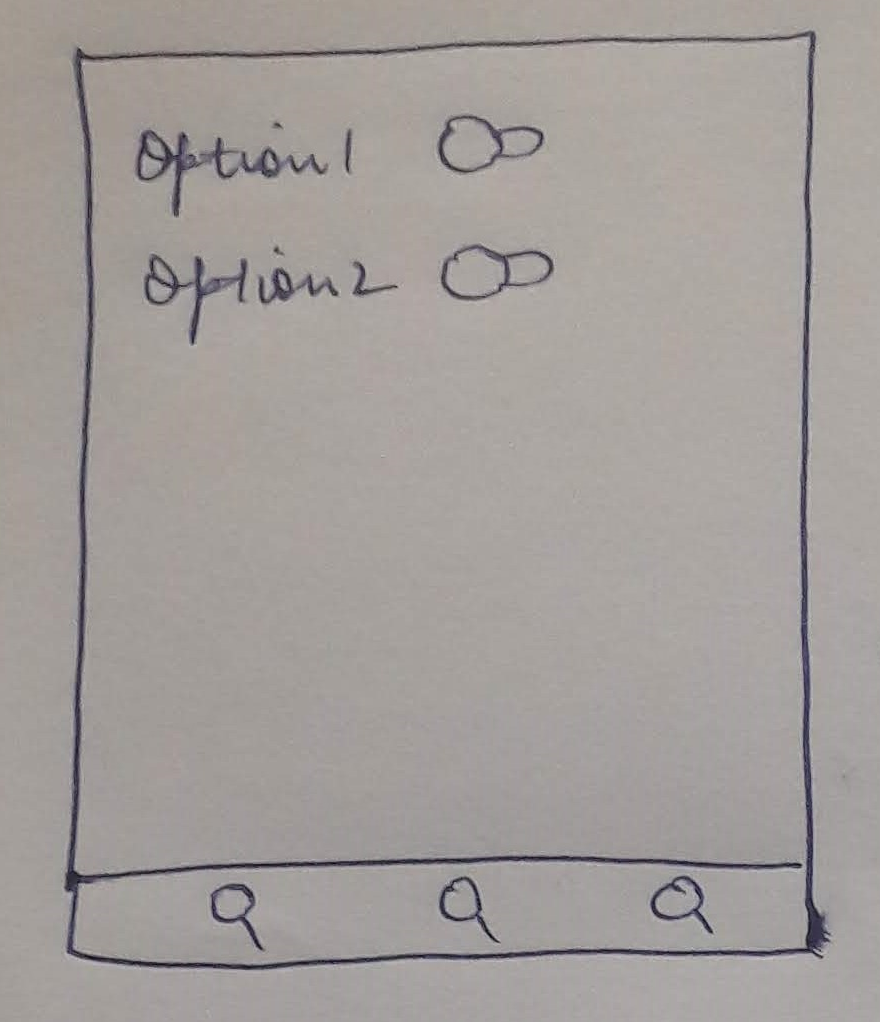 Option 1
Option 2